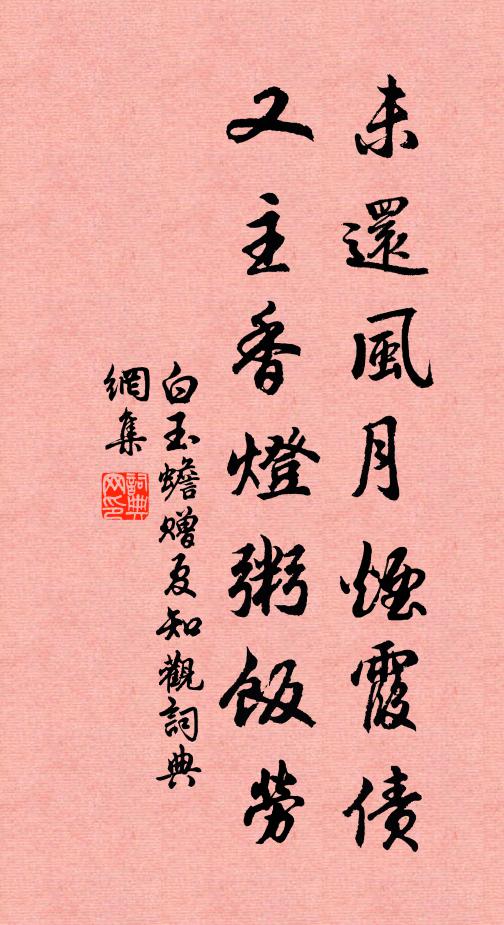 未還風月煙霞債
又主香燈粥飯勞
白玉蟾贈夏知觀詞典
網集
詞典
网印